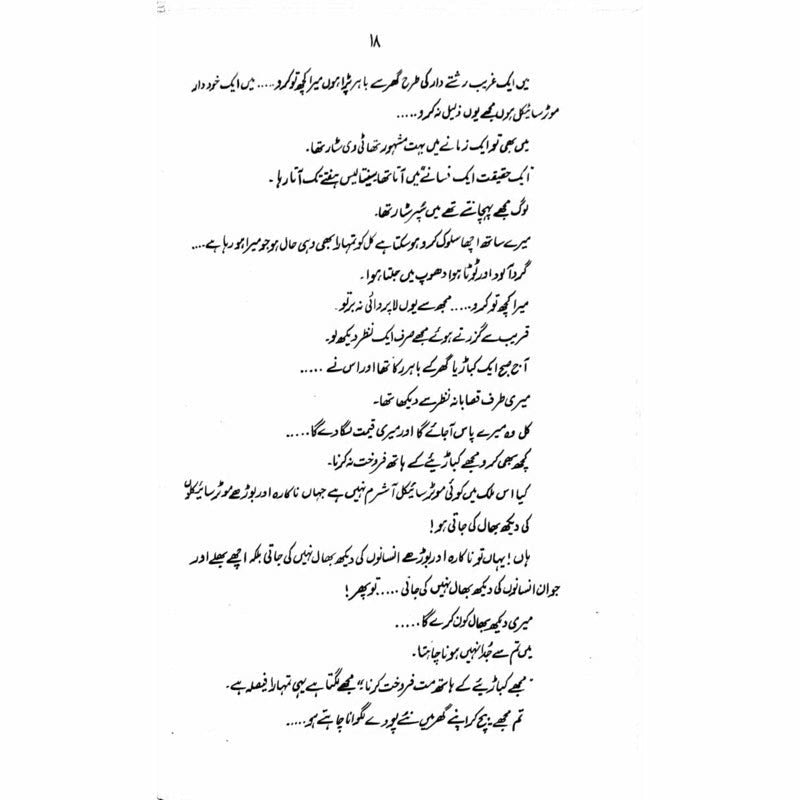 ۱۸
میں ایک غریب رشتے دار کی طرح گھر سے باہر پڑا ہوں میرا کچھ تو کرو..... میں ایک خود دار
موٹر سائیکل ہوں مجھے یوں ذلیل نہ کرو.....
میں بھی تو ایک زمانے میں بہت مشہور تھا ٹی وی سٹار تھا۔
"ایک حقیقت ایک فسانے" میں آتا تھا سینتالیس ہفتے تک آتا رہا۔
لوگ مجھے پہچانتے تھے میں سُپر سٹار تھا۔
میرے ساتھ اچھا سلوک کرو ہوسکتا ہے کل کو تمہارا بھی وہی حال ہو جو میرا ہو رہا ہے....
گرد آلود اور ٹوٹا ہوا دھوپ میں جلتا ہوا۔
میرا کچھ تو کرو..... مجھ سے یوں لاپروائی نہ برتو۔
قریب سے گزرتے ہوئے مجھے صرف ایک نظر دیکھ لو۔
آج صبح ایک کباڑیا گھر کے باہر رکا تھا اور اس نے .....
میری طرف قصابانہ نظر سے دیکھا تھا۔
کل وہ میرے پاس آجائے گا اور میری قیمت لگا دے گا.....
کچھ بھی کرو مجھے کباڑیئے کے ہاتھ فروخت نہ کرنا۔
کیا اس ملک میں کوئی موٹر سائیکل آشرم نہیں ہے جہاں ناکارہ اور بوڑھے موٹر سائیکلوں
کی دیکھ بھال کی جاتی ہو!
ہاں! یہاں تو ناکارہ اور بوڑھے انسانوں کی دیکھ بھال نہیں کی جاتی بلکہ اچھے بھلے اور
جوان انسانوں کی دیکھ بھال نہیں کی جاتی ..... تو پھر!
میری دیکھ بھال کون کرے گا.....
میں تم سے جُدا نہیں ہونا چاہتا۔
"مجھے کباڑیئے کے ہاتھ مت فروخت کرنا" مجھے لگتا ہے یہی تمہارا فیصلہ ہے۔
تم مجھے بیچ کر اپنے گھر میں نئے پودے لگوانا چاہتے ہو.....